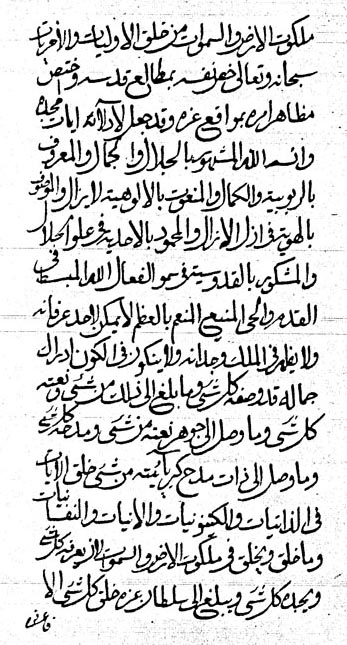 ملكوت الارض والسموات من خلق الاوليات والاخريات
سبحانه وتعالى خص نفسه بمطالع قدسه وختص
مظاهر امره بمواقع عزه وقد جعل لادلائه ايات مجده
وانه هو الله المشهود بالجلال والجمال والمعروف
بالربوبية والكمال والمنعوت بالالوهية لايزال والموصوف
بالهوية فى ازل الازال والمحمود بالاحدية فى علو الجلال
والمشكور بالقدوسية فى سمو الفعال الله المبسط فى
القدم والحى المنيع المنعم بالعظم لا يمكن لاحد عرفانه
ولا يظهر فى الملك وجدانه ولا يتكون فى الكون ادراك
جماله قد وصفه كلشئ وما بلغ الى ذلك من شئ ونعته
كلشئ وما وصل الى جوهر نعته من شئ ومدحه كلشئ
وما وصل الى ذات مدح كبريائيته من شئ خلق الايات
فى الذاتيات والكينونيات والانيات والنفسانيات
وما خلق ويخلق فى ملكوت الارض والسموات لان يعرفه كلشئ
ويحبه كلشئ ويبلغ الى سلطان عزه خلق كلشئ الا